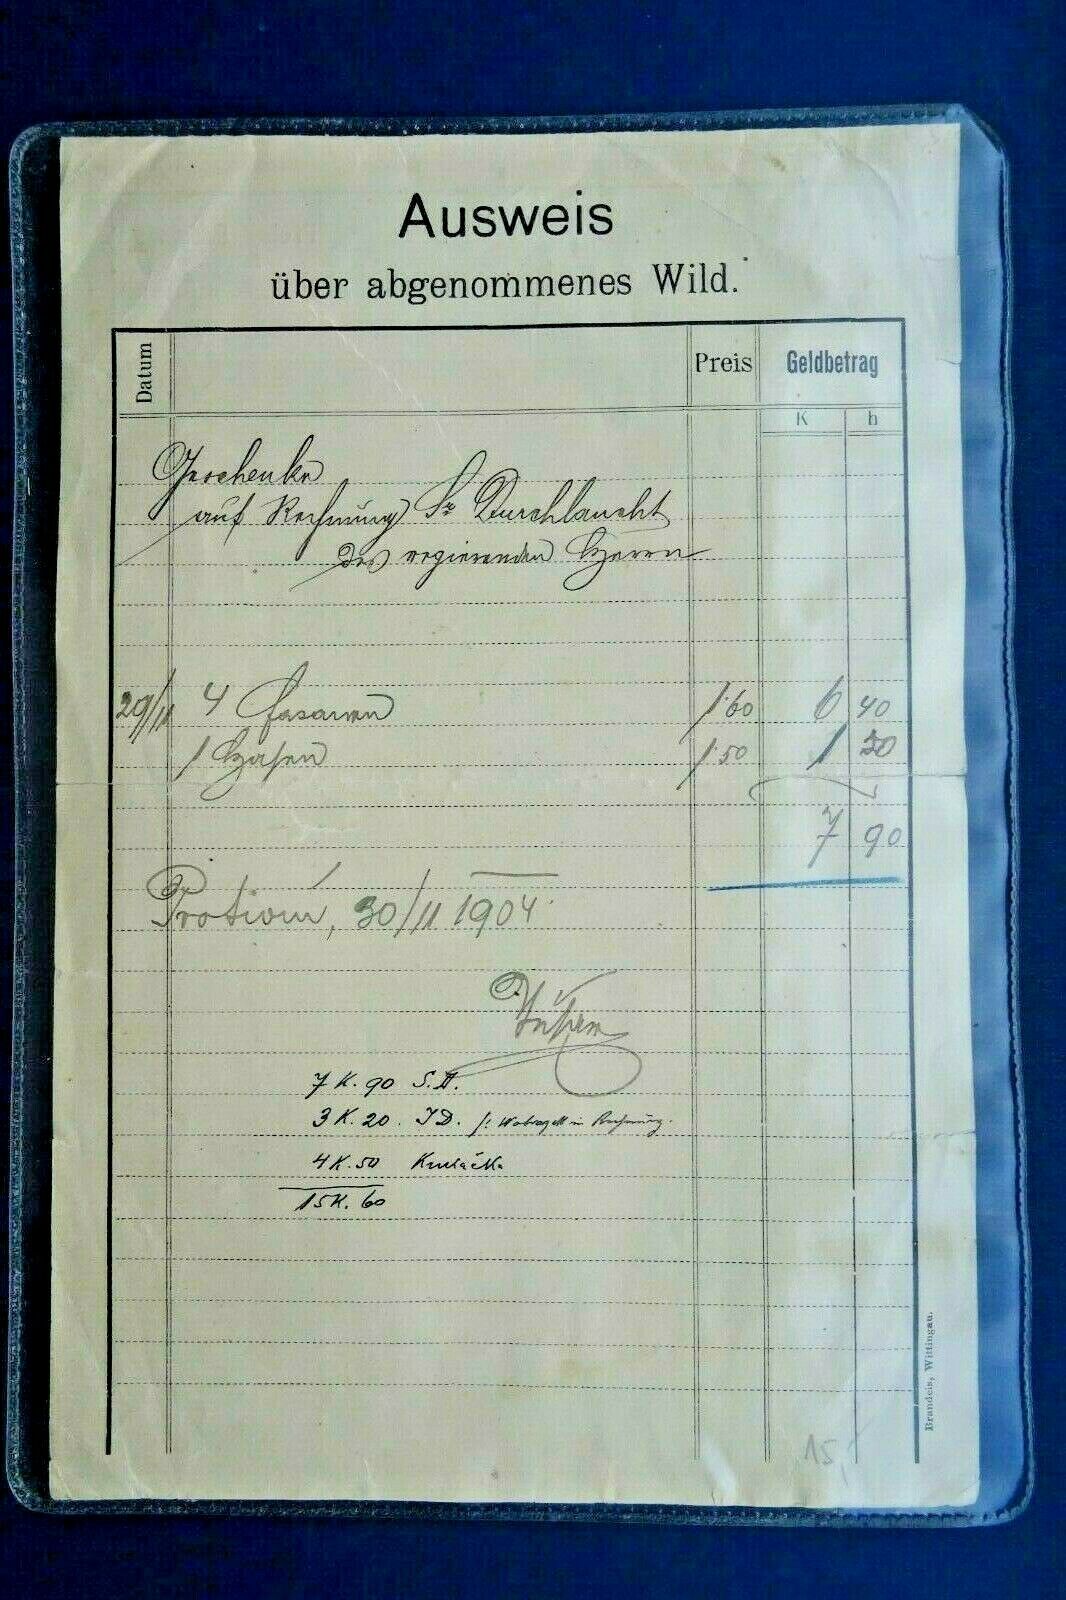 Ausweis
über abgenommenes Wild.
Datum Preis Geldbetrag
K h
Geschenke
auf Rechnung Sr Durchlaucht
des regierenden Herrn
29/11 4 Fasanen 1·60 6 40
1 Hasen 1·50 1 50
7 90
Protivín, 30/11 1904
7 K. 90 S.D.
3 K. 20. I D. in Rechnung.
4 K. 50
15 K. 60
Brandeis, Wittingau.
15,-